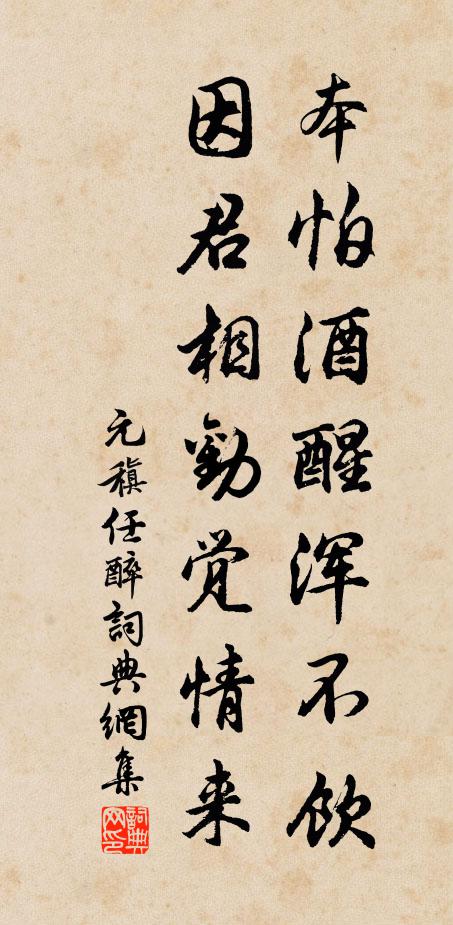 本怕酒醒浑不饮
因君相勸觉情来
元稹任醉詞典網集
詞典网印